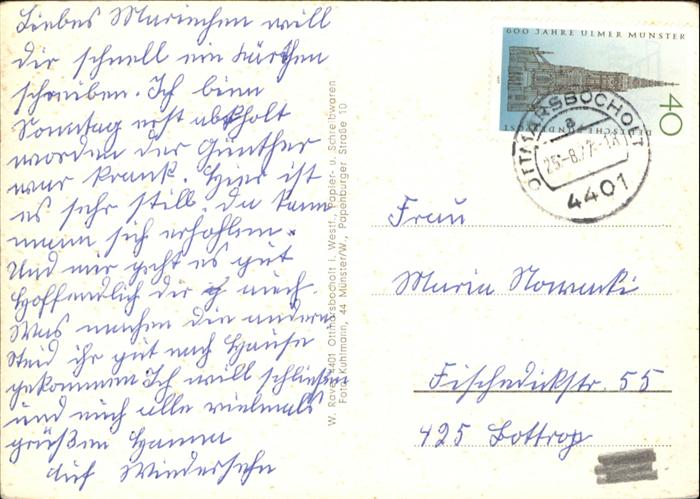 Liebes Mariechen will
dir schnell ein Kärtchen
schreiben. Ich binn
Sonntag erst abgholt
worden der Günther
war krank. Hier ist
es sehr still. da kann
mann sich erhohlen.
Und mir geht es gut
Hoffendlich dir auch.
Was machen die andern
Seid ihr gut nach Hause
gekommen. Ich will schließen
und euch alle vielmals
grüßen Hanna
Auf Wiedersehn
W. Raver, 4401 Ottmarsbocholt i. Westf., Papier- u. Schreibwaren
Foto: Kuhlmann, 44 Münster/W., Papenburger Straße 10
600 JAHRE ULMER MÜNSTER
40
DEUTSCHE BUNDESPOST
OTTMARSBOCHOLT
a
25.-8.77.-18
4401
Frau
Maria Nowacki
Fischedickstr. 55
425 Bottrop